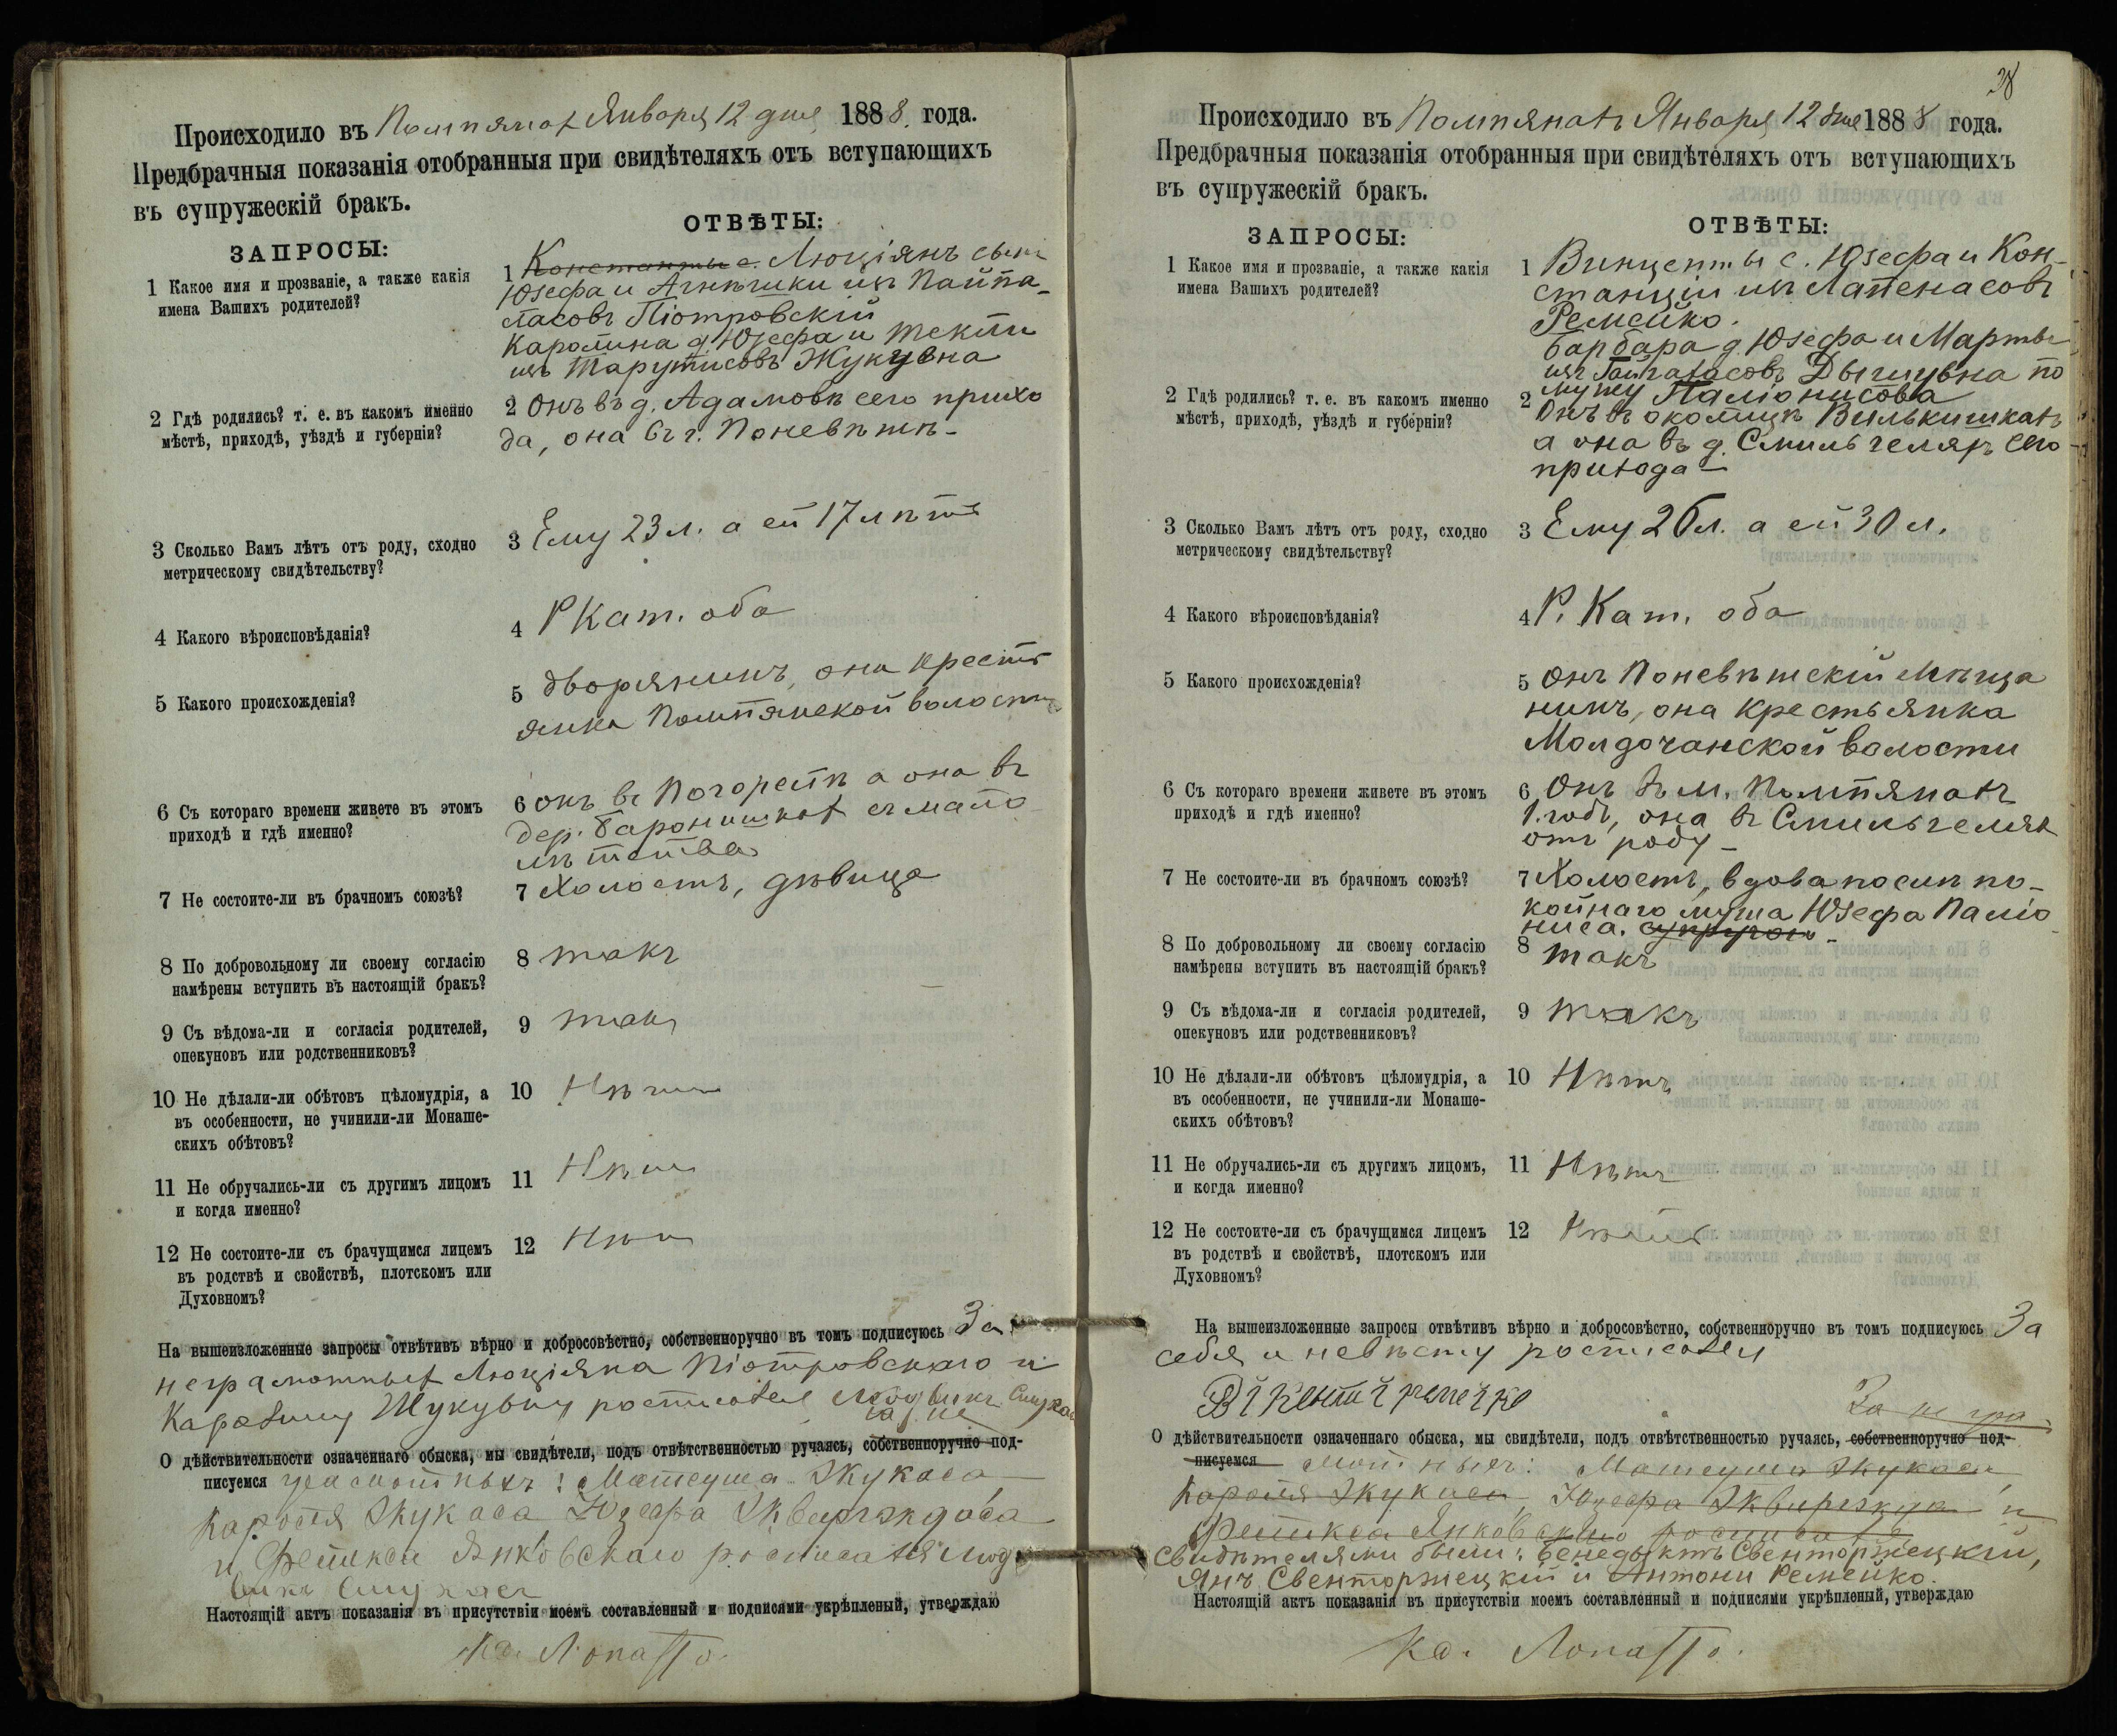 Происходило въ Помпянах Января 12 дня 1888. года.
Предбрачныя показанія отобранныя при свидѣтеляхъ отъ вступающихъ
въ супружескій бракъ.
ЗАПРОСЫ:
ОТВѢТЫ:
1 Какое имя и прозваніе, а также какія
имена Вашихъ родителей?
1 Константы с. Люціянъ сынъ
Юзефа и Агнѣшки изъ
Піотровскій
Каролина д. Юзефа и Текли
изъ Тарутисовъ Жукувна
2 Гдѣ родились? т. е. въ какомъ именно
мѣстѣ, приходѣ, уѣздѣ и губерніи?
2 Онъ въ д. Адамовѣ сего прихо
да, она въ г. Поневѣжѣ-
3 Сколько Вамъ лѣтъ отъ роду, сходно
метрическому свидѣтельству?
3 Ему 23 л. а ей 17 лѣтъ
4 Какого вѣроисповѣданія?
4 Р Кат. оба
5 Какого происхожденія?
5 дворянинъ, она крестъ
янка Помпянской волости
6 Съ котораго времени живете въ этомъ
приходѣ и гдѣ именно?
6 онъ въ а она въ
дер. Баронишках съ мало
лѣтства
7 Не состоите-ли въ брачномъ союзѣ?
7 Холостъ, дѣвица
8 По добровольному ли своему согласію
намѣрены вступить въ настоящій бракъ?
8 такъ
9 Съ вѣдома-ли и согласія родителей,
опекуновъ или родственниковъ?
9 такъ
10 Не дѣлали-ли обѣтовъ цѣломудрія, а
въ особенности, не учинили-ли Монаше-
скихъ обѣтовъ?
10 Нѣтъ
11 Не обручались-ли съ другимъ лицомъ
и когда именно?
11 Нѣтъ
12 Не состоите-ли съ брачущимся лицемъ
въ родствѣ и свойствѣ, плотскомъ или
Духовномъ?
12 Нѣтъ
На вышеизложенные запросы отвѣтивъ вѣрно и добросовѣстно, собственноручно въ томъ подписуюсь За
неграмотных Люціяна Піотровскаго и
Каролину Жукувну росписался
О дѣйствительности означеннаго обыска, мы свидѣтели, подъ отвѣтственностью ручаясь, собственноручно под-
за не
писуемся грамотныхъ: Матеуша Жукаса
Кароля Жукаса Юзефа
и Феликса Янковскаго росписался Люд
викъ
Настоящій актъ показанія въ присутствіи моемъ составленный и подписями укрѣпленый, утверждаю
Кс. Лопатто.
28
Происходило въ Помпянахъ Января 12 дня 1888 года.
Предбрачныя показанія отобранныя при свидѣтеляхъ отъ вступающихъ
въ супружескій бракъ.
ЗАПРОСЫ:
ОТВѢТЫ:
1 Какое имя и прозваніе, а также какія
имена Вашихъ родителей?
1 Винценты с. Юзефа и Кон-
станціи изъ Лапенасовъ
Ремейко.
Барбара д. Юзефа и Марты
изъ по
мужу Паліонисова
2 Гдѣ родились? т. е. въ какомъ именно
мѣстѣ, приходѣ, уѣздѣ и губерніи?
2 Онъ въ околицѣ Вилькишкахъ
а она въ д. Смильгеляхъ сего
прихода-
3 Сколько Вамъ лѣтъ отъ роду, сходно
метрическому свидѣтельству?
3 Ему 26 л. а ей 30 л.
4 Какого вѣроисповѣданія?
4 Р. Кат. оба
5 Какого происхожденія?
5 Онъ Поневѣжскій мѣща
нинъ, она крестьянка
волости
6 Съ котораго времени живете въ этомъ
приходѣ и гдѣ именно?
6 Онъ въ м. Помпянахъ
1. годъ, она въ Смильгелях
отъ роду-
7 Не состоите-ли въ брачномъ союзѣ?
7 Холостъ, вдова послѣ по-
койнаго мужа Юзефа Паліо
ниса. супругою-
8 По добровольному ли своему согласію
намѣрены вступить въ настоящій бракъ?
8 такъ
9 Съ вѣдома-ли и согласія родителей,
опекуновъ или родственниковъ?
9 такъ
10 Не дѣлали-ли обѣтовъ цѣломудрія, а
въ особенности, не учинили-ли Монаше-
скихъ обѣтовъ?
10 Нѣтъ
11 Не обручались-ли съ другимъ лицомъ,
и когда именно?
11 Нѣтъ
12 Не состоите-ли съ брачущимся лицемъ
въ родствѣ и свойствѣ, плотскомъ или
Духовномъ?
12 Нѣтъ
На вышеизложенные запросы отвѣтивъ вѣрно и добросовѣстно, собственноручно въ томъ подписуюсь За
себя и невѣсту росписался
За не гра
О дѣйствительности означеннаго обыска, мы свидѣтели, подъ отвѣтственностью ручаясь, собственноручно под-
писуемся мотныхъ: Матеуша Жукаса,
Кароля Жукаса, Юзефа и
Феликса Янковскаго росписался
Свидѣтелями были: Бенедыктъ Свенторжецкій,
Янъ Свенторжецкій и Антони Ремейко.
Настоящій актъ показанія въ присутствіи моемъ составленный и подписями укрѣпленый, утверждаю
Кс. Лопатто.